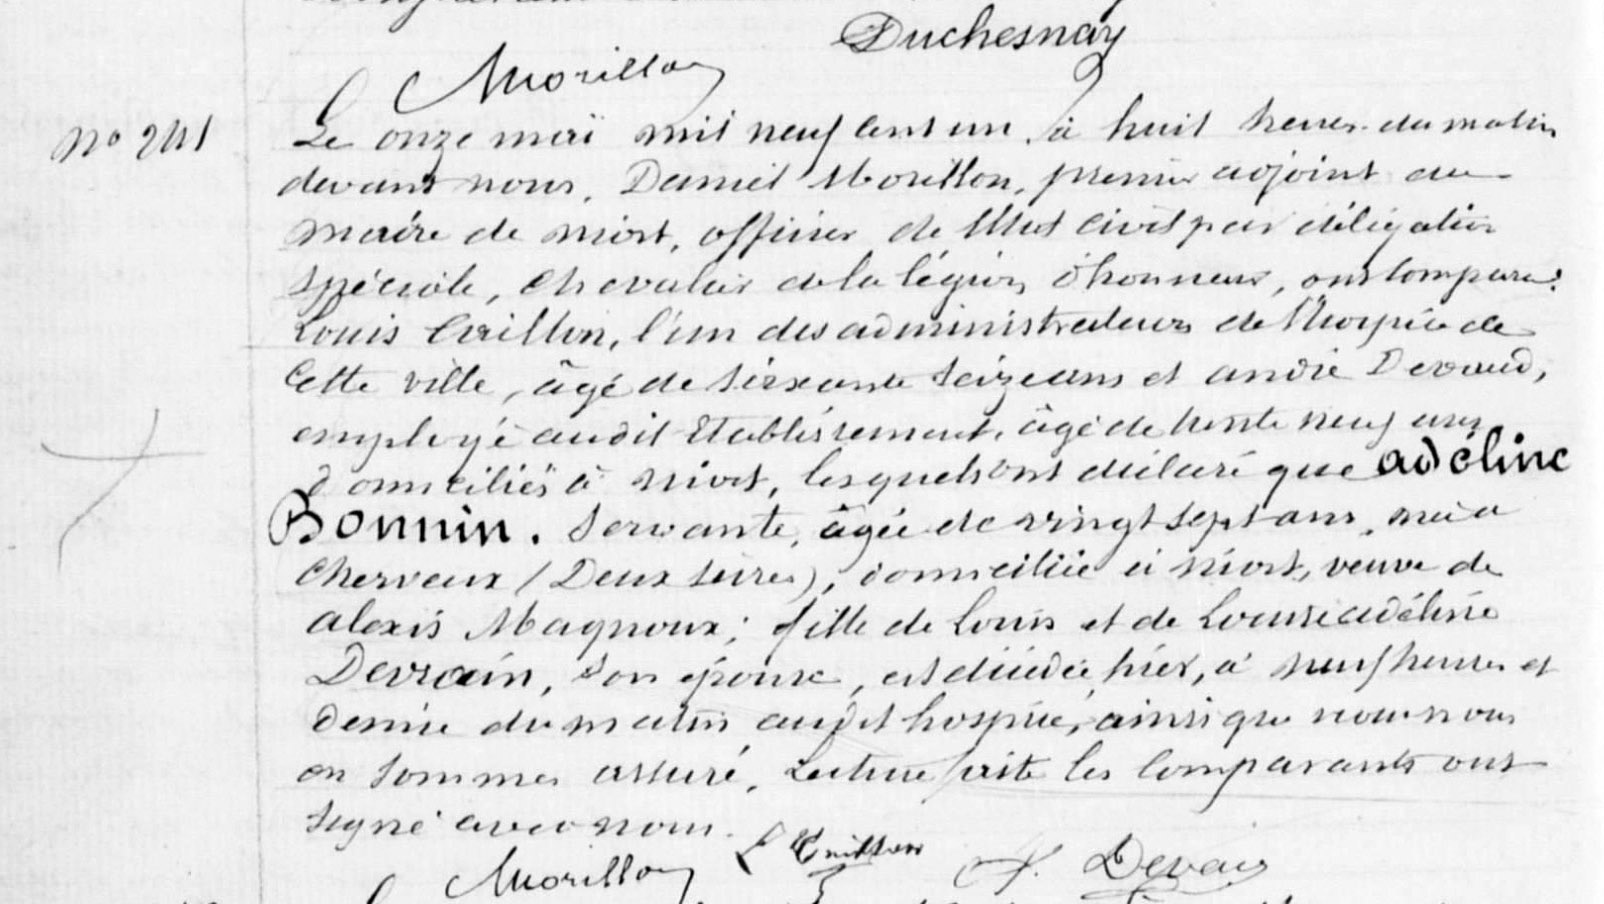 Duchesnay
Morillon
No 241
Le onze mai mil neuf cent un, à huit heures du matin
devant nous, Daniel Morillon, premier adjoint au
maire de Niort, officier de l'Etat civil par délégation
spéciale, chevalier de la légion d'honneur, ont comparu:
Louis Cuillon, l'un des administrateurs de l'hospice de
cette ville, âgé de soixante seize ans et andré Devaud,
employé audit Etablissement, âgé de trente neuf ans
domiciliés à Niort, lesquels ont déclaré que adéline
Bonnin. Servante, âgée de vingt sept ans, née à
Cherveux (Deux Sèvres), domiciliée à Niort, veuve de
alexis Magnoux; fille de Louis et de Louise adéline
Devrain, son épouse, est décédée hier, à neuf heures et
demie du matin audit hospice, ainsi que nous nous
en sommes assuré, Lecture faite les comparants ont
signé avec nous.
Morillon